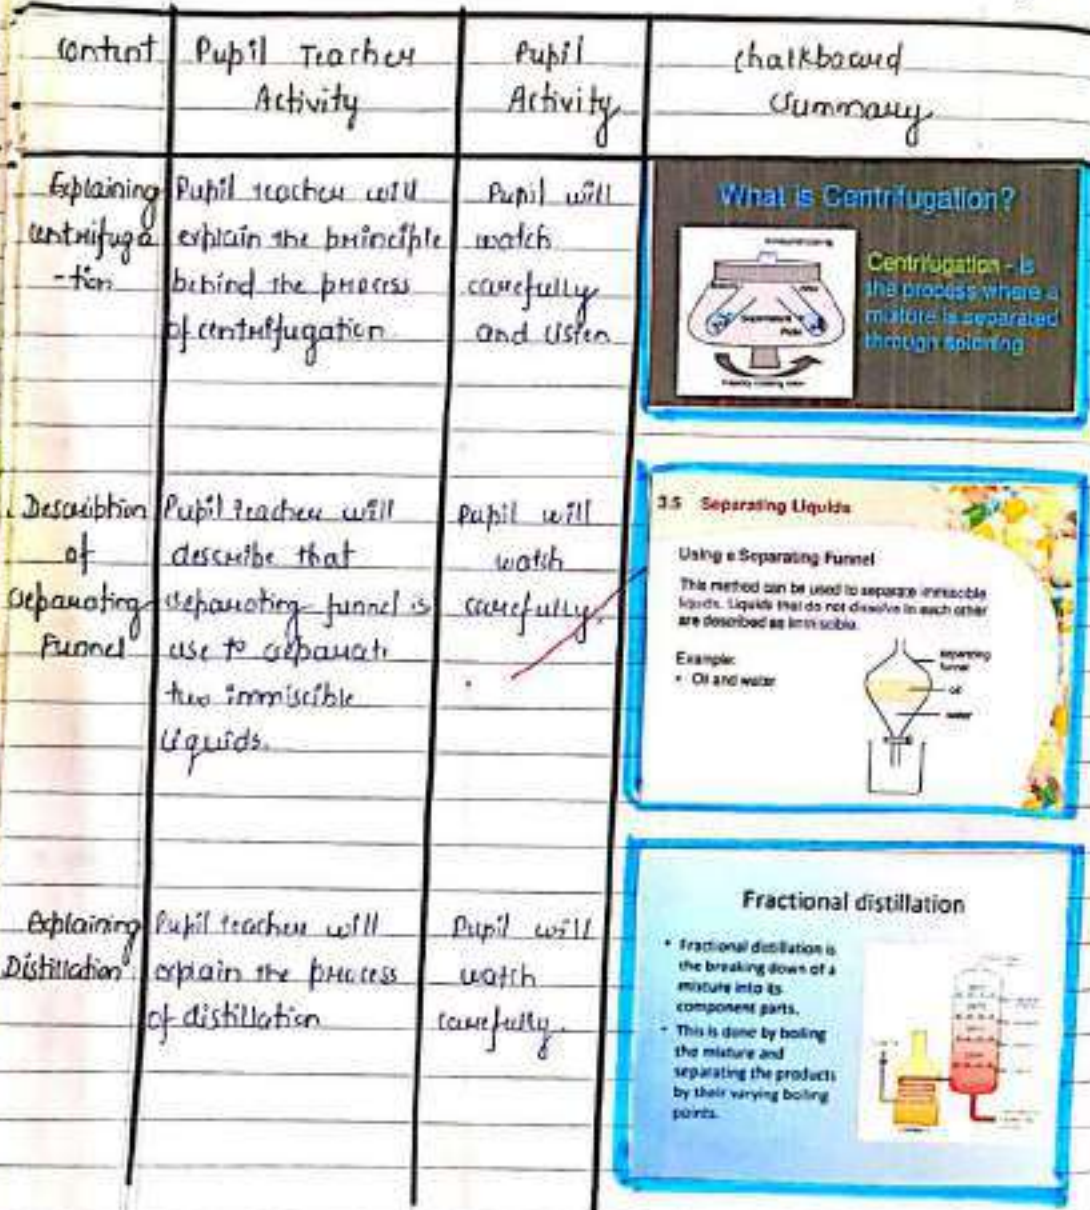 Content
Pupil Teacher
Activity
Pupil
Activity
Chalkboard
Summary
Explaining
centrifuga
-tion
Pupil teacher will
explain the principle
behind the process
of centrifugation
Pupil will
watch
carefully
and listen
What is Centrifugation?
Centrifugation - is
the process where a
mixture is separated
through spinning
Description
of
separating
Funnel
Pupil teacher will
describe that
separating funnel is
use to separate
two immiscible
liquids.
Pupil will
watch
carefully.
3.5 Separating Liquids
Using a Separating Funnel
This method can be used to separate immiscible
liquids. Liquids that do not dissolve in each other
are described as immiscible.
Example:
• Oil and water
separating
funnel
oil
water
Explaining
Distillation
Pupil teacher will
explain the process
of distillation
Pupil will
watch
carefully.
Fractional distillation
• Fractional distillation is
the breaking down of a
mixture into its
component parts.
• This is done by boiling
the mixture and
separating the products
by their varying boiling
points.